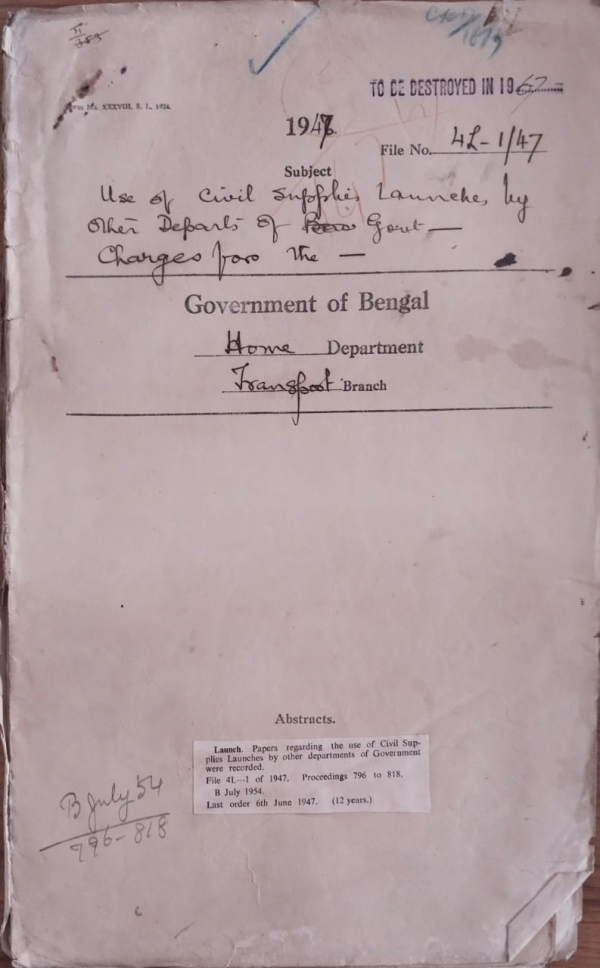 TO BE DESTROYED IN 1967
Form No. XXXVIII, B. I., 1924.
1947.
File No. 4L-1/47
Subject
Use of Civil Supplies Launches by
other Departs of Govt —
Charges for the —
Government of Bengal
Home Department
Transport Branch
Abstracts.
Launch. Papers regarding the use of Civil Sup-
plies Launches by other departments of Government
were recorded.
File 4L—1 of 1947. Proceedings 796 to 818.
B July 1954.
Last order 6th June 1947. (12 years.)
B July 54
796-818